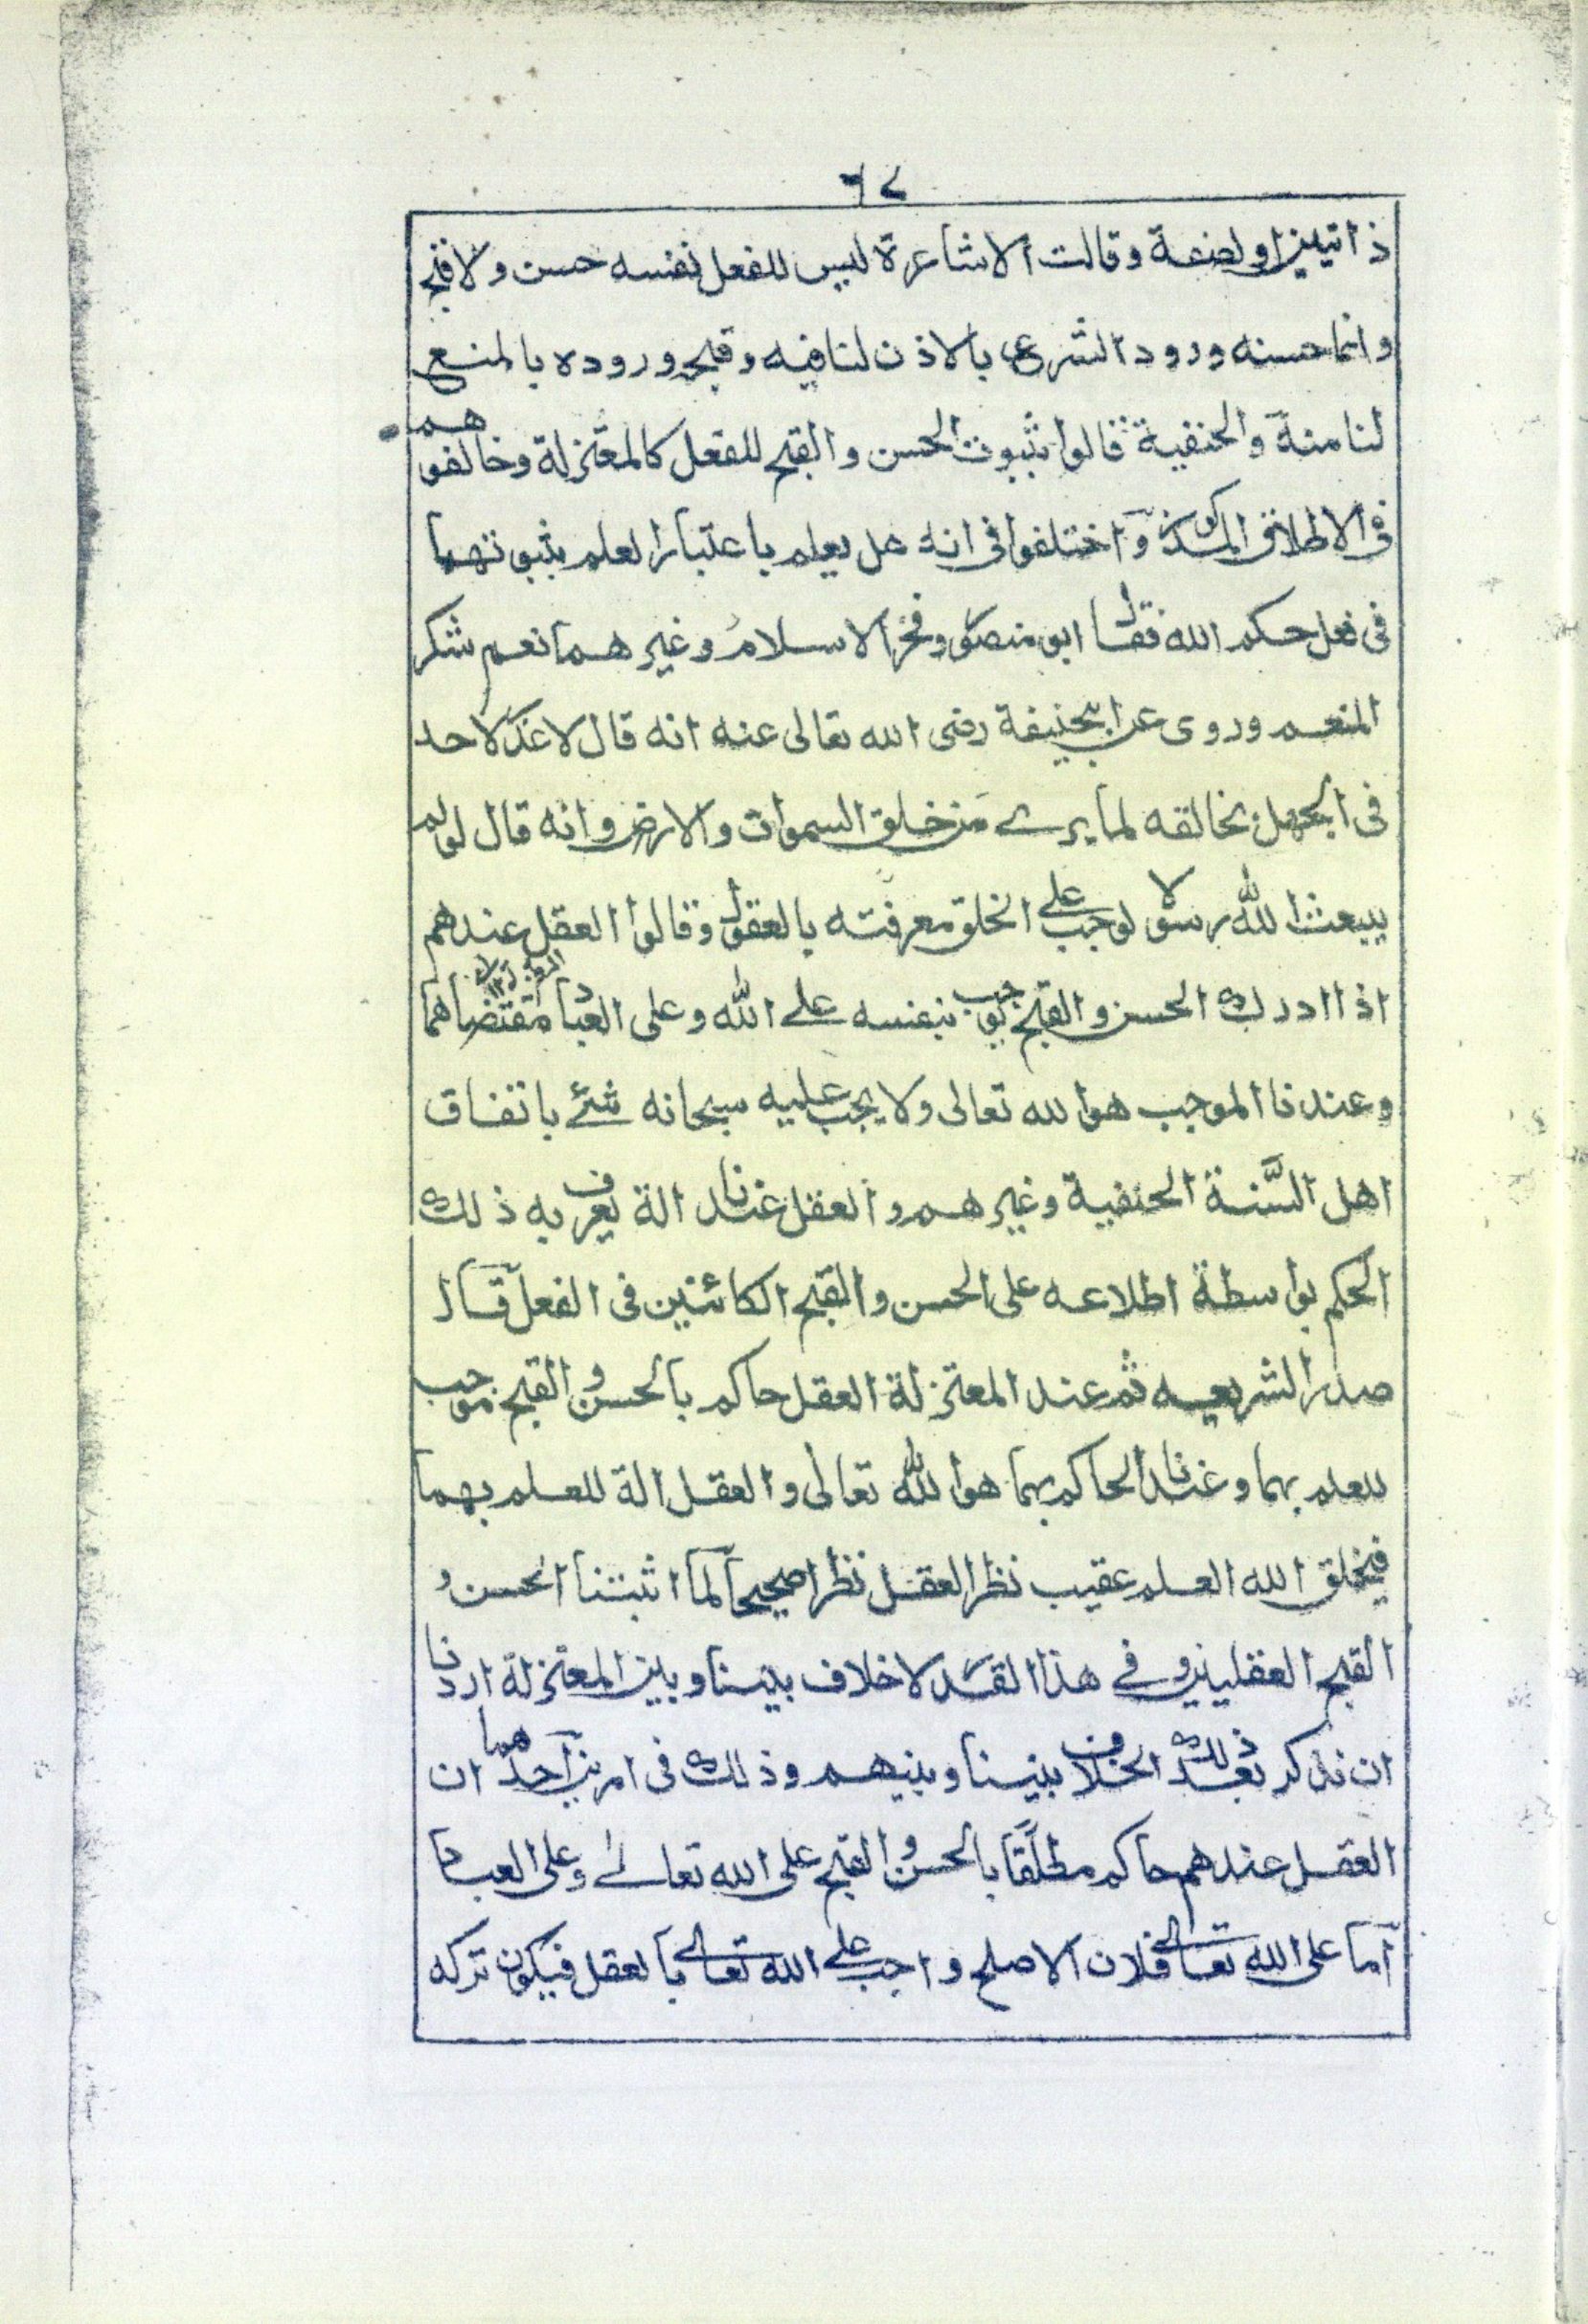 ٦٧
ذاتيين او لصفة وقالت الاشاعرة ليس للفعل نفسه حسن ولا قبح
وانما حسنه ورود الشرع بالاذن لنا فيه وقبحه وروده بالمنع
لنا منه والحنفية قالوا بثبوت الحسن والقبح للفعل كالمعتزلة وخالفوهم
فى الاطلاق المذكور واختلفوا فى انه هل يعلم باعتبار العلم بثبوتهما
فى فعل حكم الله فقال ابو منصور وفخر الاسلام وغيرهما نعم شكر
المنعم وروى عن ابيحنيفة رضى الله تعالى عنه انه قال لا عذر لاحد
فى الجهل بخالقه لما يرے من خلق السموات والارض وانه قال لولم
يبعث الله رسولا لوجب علے الخلق معرفته بالعقول وقالوا العقل عندهم
اذا ادرك الحسن والقبح يوجب بنفسه علے الله وعلى العباد مقتضاهما
وعندنا الموجب هو الله تعالى ولا يجب عليه سبحانه شئے باتفاق
اهل السَّنة الحنفية وغيرهم والعقل عندنا الة يعرف به ذلك
الحكم بواسطة اطلاعه على الحسن والقبح الكائنين فى الفعل قال
صدر الشريعه ثم عند المعتزلة العقل حاكم بالحسن و القبح موجب
للعلم بهما وعندنا الحاكم بهما هو الله تعالى والعقل الة للعلم بهما
فيخلق الله العلم عقيب نظر العقل نظرا صحيحا لما اثبتنا الحسن و
القبح العقليين وفے هذا القدر لا خلاف بيننا وبين المعتزلة اردنا
ان نذكر بعد ذلك الخلاف بيننا وبينهم وذلك فى امرين احدهما ان
العقل عندهم حاكم مطلقًا بالحسن و القبح على الله تعالے وعلى العباد
اما على الله تعالى فلان الاصلح واجب علے الله تعالى بالعقل فيكون تركه